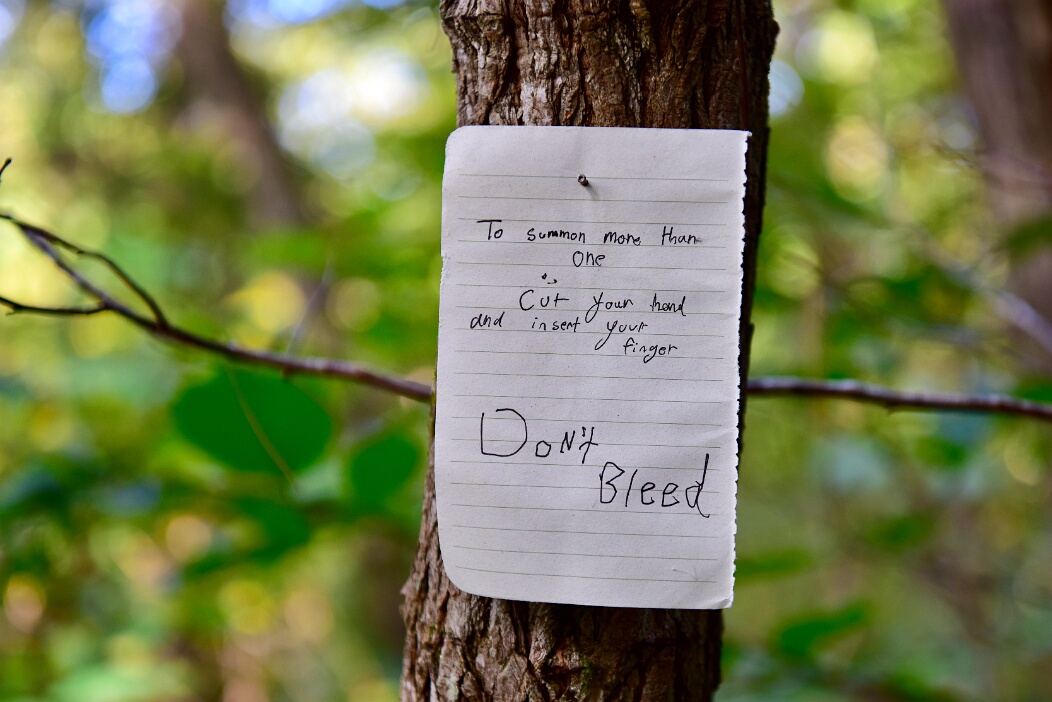 To summon more than
one
Cut your hand
and insert your
finger
Don't
Bleed